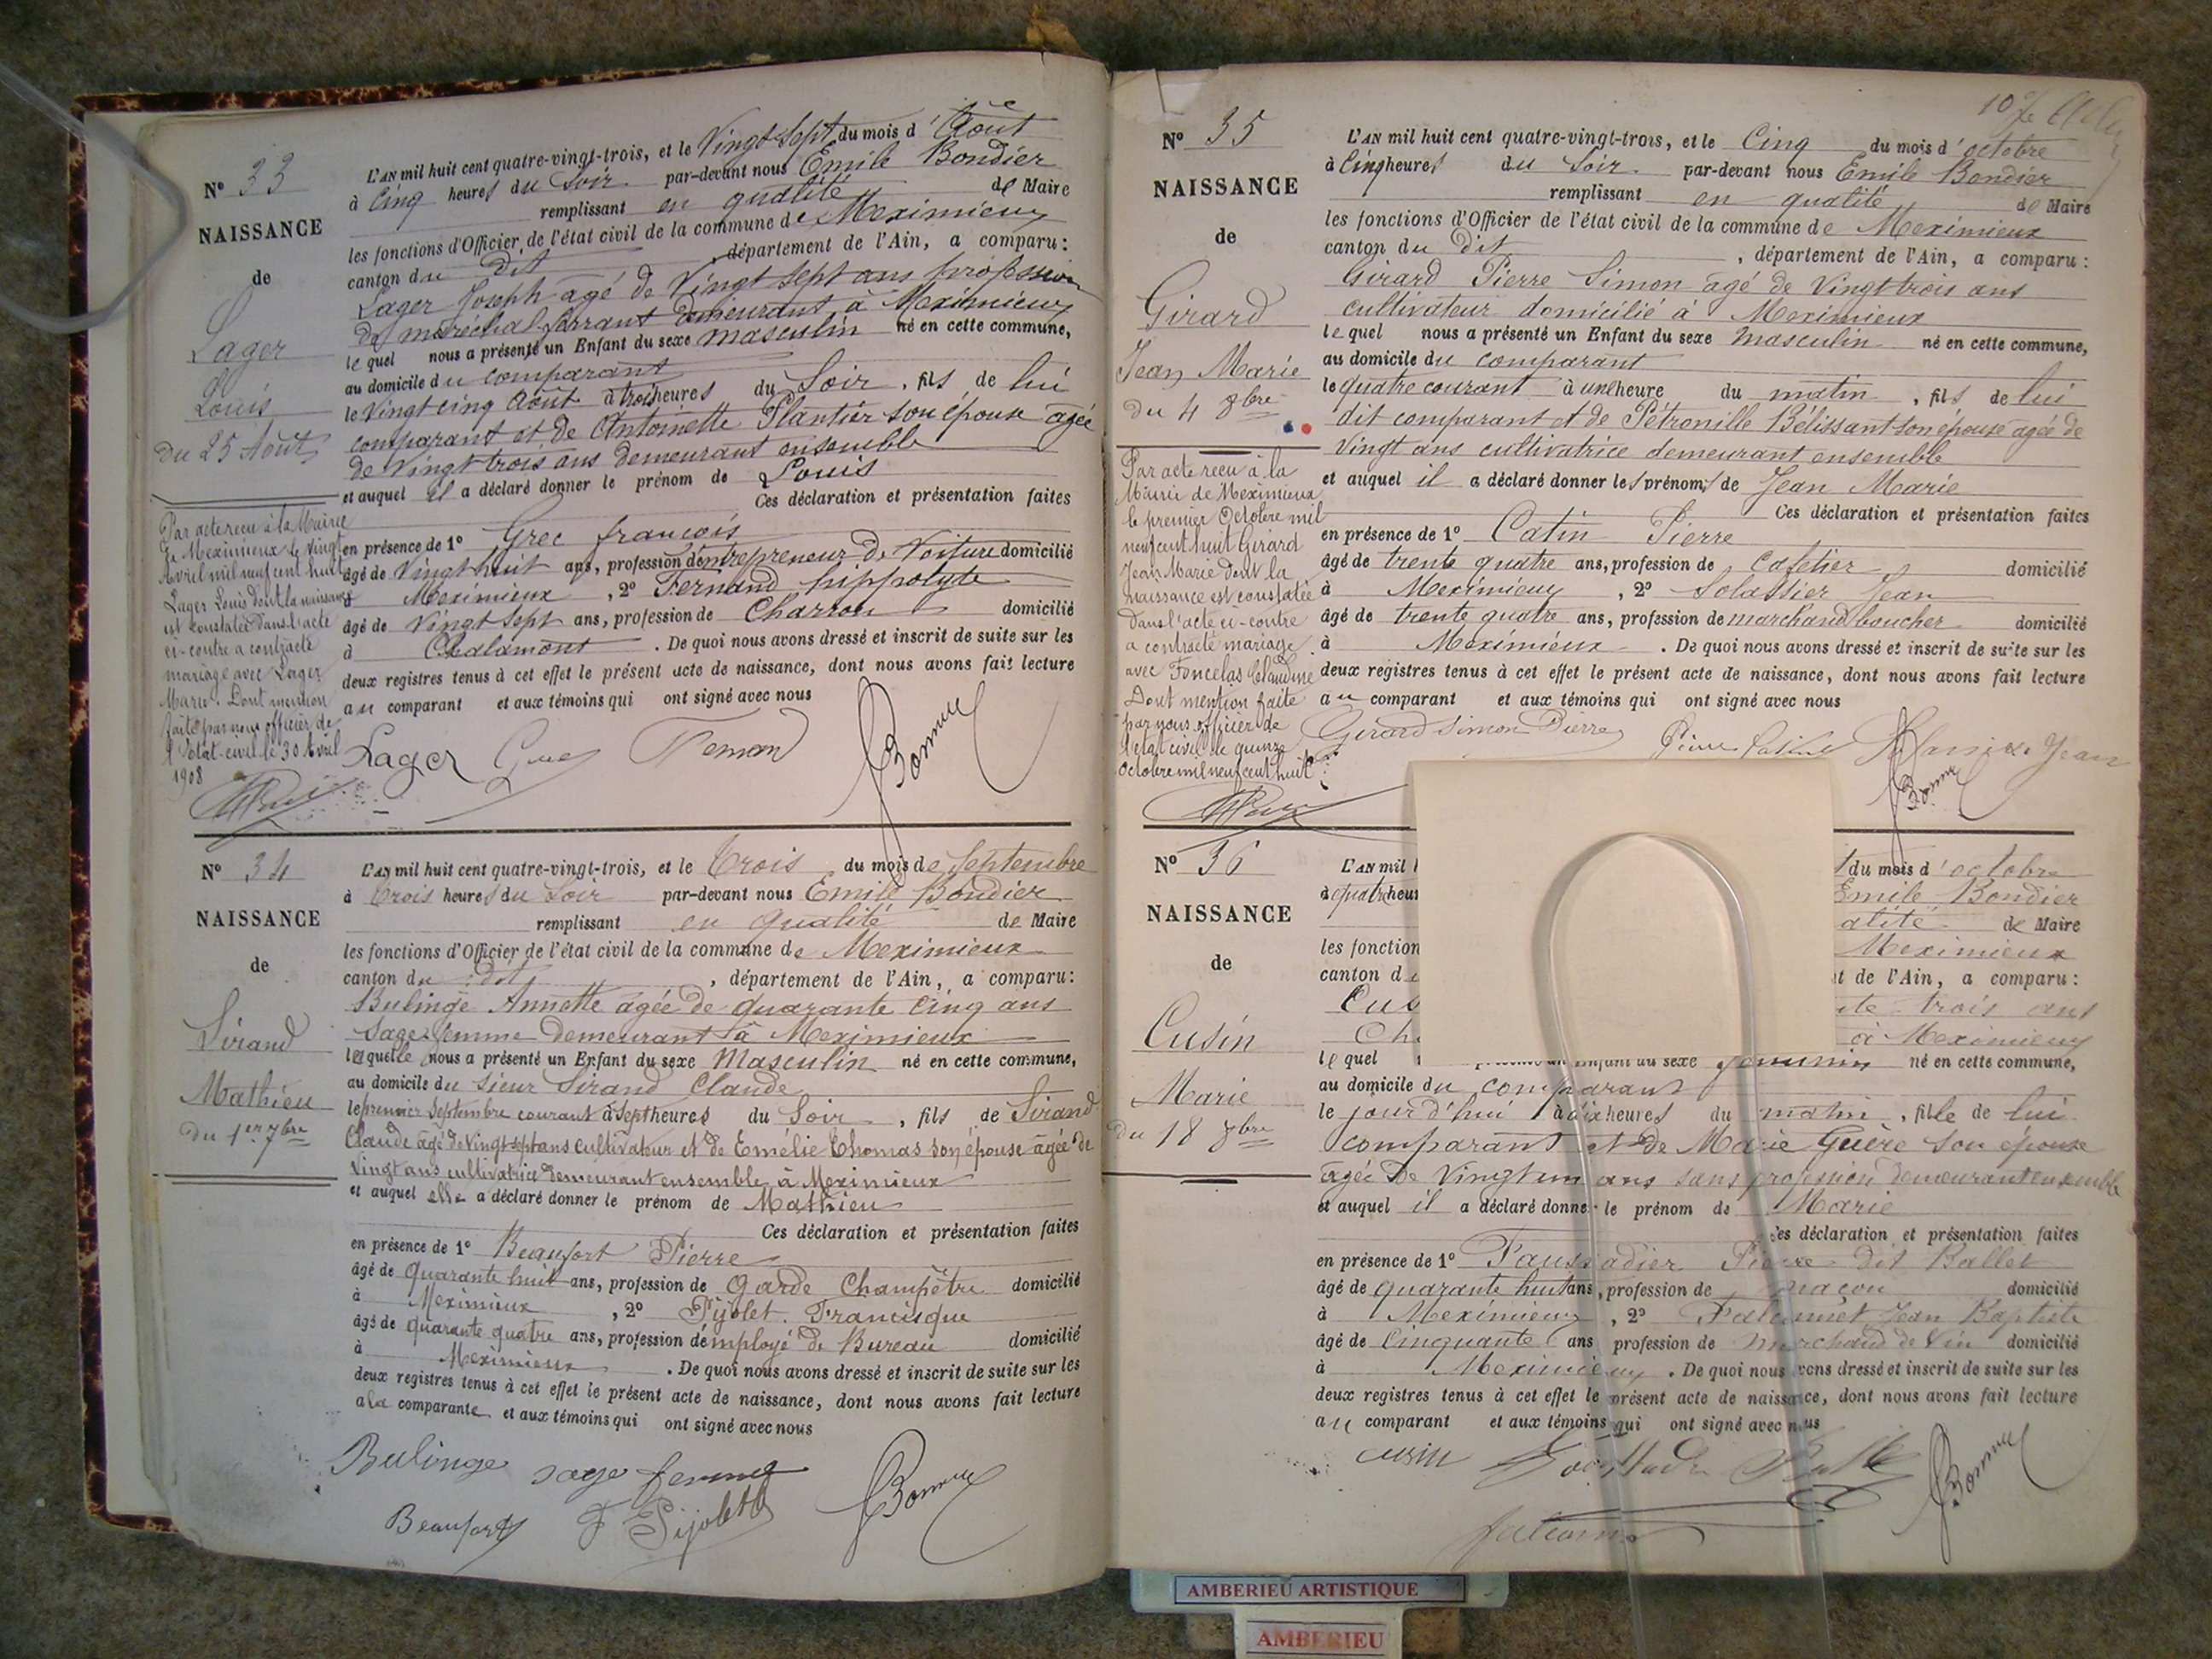 N° 33
NAISSANCE
de
Lager
Louis
du 25 Août
L'AN mil huit cent quatre-vingt-trois, et le Vingt-Sept du mois d'Août
à Cinq heures du Soir par-devant nous Emile Bondier
remplissant en qualité de Maire
les fonctions d'Officier de l'état civil de la commune de Meximieux
canton du dit , département de l'Ain, a comparu:
Lager Joseph agé de Vingt sept ans profession
de maréchal-ferrant demeurant à Meximieux
lequel nous a présenté un Enfant du sexe masculin né en cette commune,
au domicile du comparant
le Vingt cinq Août à trois heures du Soir, fils de lui
comparant et de Antoinette Plantier son épouse agée
de Vingt trois ans demeurant ensemble
et auquel il a déclaré donner le prénom de Louis
Ces déclaration et présentation faites
en présence de 1° Grec françois
âgé de Vingt huit ans, profession d'entrepreneur de Voiture domicilié
à Meximieux , 2° Fernand hippolyte
âgé de Vingt Sept ans, profession de Charron domicilié
à Chalamont . De quoi nous avons dressé et inscrit de suite sur les
deux registres tenus à cet effet le présent acte de naissance, dont nous avons fait lecture
au comparant et aux témoins qui ont signé avec nous
Lager
Par acte recu à la Mairie
de Meximieux le vingt
Avril mil neuf cent huit
Lager Louis dont la naissance
est constatée dans l'acte
ci-contre a contracté
mariage avec Lager
Marie. Dont mention
faite par nous officier de
l'Etat-civil le 30 Avril
1908
N° 34
NAISSANCE
de
Sirand
Mathieu
du 1er 7bre
L'AN mil huit cent quatre-vingt-trois, et le trois du mois de Septembre
à trois heures du Soir par-devant nous Emile Bondier
remplissant en qualité de Maire
les fonctions d'Officier de l'état civil de la commune de Meximieux
canton du dit , département de l'Ain, a comparu:
Bulinge Annette agée de quarante cinq ans
Sage-femme demeurant à Meximieux
laquelle nous a présenté un Enfant du sexe Masculin né en cette commune,
au domicile du sieur Sirand Claude
le premier Septembre courant à Sept heures du Soir , fils de Sirand
Claude agé de Vingt-sept ans cultivateur et de Emélie Thomas son épouse agée de
Vingt ans cultivatrice demeurant ensemble à Meximieux
et auquel elle a déclaré donner le prénom de Mathieu
Ces déclaration et présentation faites
en présence de 1° Beaufort Pierre
âgé de quarante huit ans, profession de garde Champêtre domicilié
à Meximieux , 2° Pijolet Francisque
âgé de quarante quatre ans, profession d'employé de Bureau domicilié
à Meximieux . De quoi nous avons dressé et inscrit de suite sur les
deux registres tenus à cet effet le présent acte de naissance, dont nous avons fait lecture
a la comparante et aux témoins qui ont signé avec nous
Bulinge sage femme
Beaufort F Pijolet
N° 35
NAISSANCE
de
Girard
Jean Marie
du 4 8bre
L'AN mil huit cent quatre-vingt-trois, et le Cinq du mois d'octobre
à Cinq heures du Soir par-devant nous Emile Bondier
remplissant en qualité de Maire
les fonctions d'Officier de l'état civil de la commune de Meximieux
canton du dit , département de l'Ain, a comparu:
Girard Pierre Simon agé de Vingt trois ans
cultivateur domicilié à Meximieux
lequel nous a présenté un Enfant du sexe masculin né en cette commune,
au domicile du comparant
le quatre courant à une heure du matin , fils de lui
dit comparant et de Pétronille Bélissant son épouse agée de
Vingt ans cultivatrice demeurant ensemble
et auquel il a déclaré donner les prénoms de Jean Marie
Ces déclaration et présentation faites
en présence de 1° Catin Pierre
âgé de trente quatre ans, profession de cafetier domicilié
à Meximieux , 2° Solassier Jean
âgé de trente quatre ans, profession de marchand boucher domicilié
à Meximieux . De quoi nous avons dressé et inscrit de suite sur les
deux registres tenus à cet effet le présent acte de naissance, dont nous avons fait lecture
au comparant et aux témoins qui ont signé avec nous
Girard Simon Pierre
Par acte recu à la
Mairie de Meximieux
le premier Octobre mil
neuf cent huit Girard
Jean Marie dont la
naissance est constatée
dans l'acte ci-contre
a contracté mariage
avec Foncelas Claudine
Dont mention faite
par nous officier de
l'état civil le quinze
Octobre mil neuf cent huit
N° 36
NAISSANCE
de
Cusin
Marie
du 18 8bre
L'AN mil du mois d'octobre
à quatre heu Emile Bondier
alité de Maire
les fonction Meximieux
canton d t de l'Ain, a comparu:
Cus te trois ans
Ch à Meximieux
lequel Enfant du sexe féminin né en cette commune,
au domicile du comparant
le jour d'hui à dix heures du matin , fille de lui
comparant et de Marie Guère son épouse
agée de Vingt un ans sans profession demeurant ensemble
et auquel il a déclaré donner le prénom de Marie
Ces déclaration et présentation faites
en présence de 1° Pierre dit Ballet
âgé de quarante huit ans, profession de maçon domicilié
à Meximieux , 2° Jean Baptiste
âgé de Cinquante ans profession de marchand de vin domicilié
à Meximieux . De quoi nous avons dressé et inscrit de suite sur les
deux registres tenus à cet effet le présent acte de naissance, dont nous avons fait lecture
au comparant et aux témoins qui ont signé avec nous
cusin
AMBERIEU ARTISTIQUE
AMBERIEU